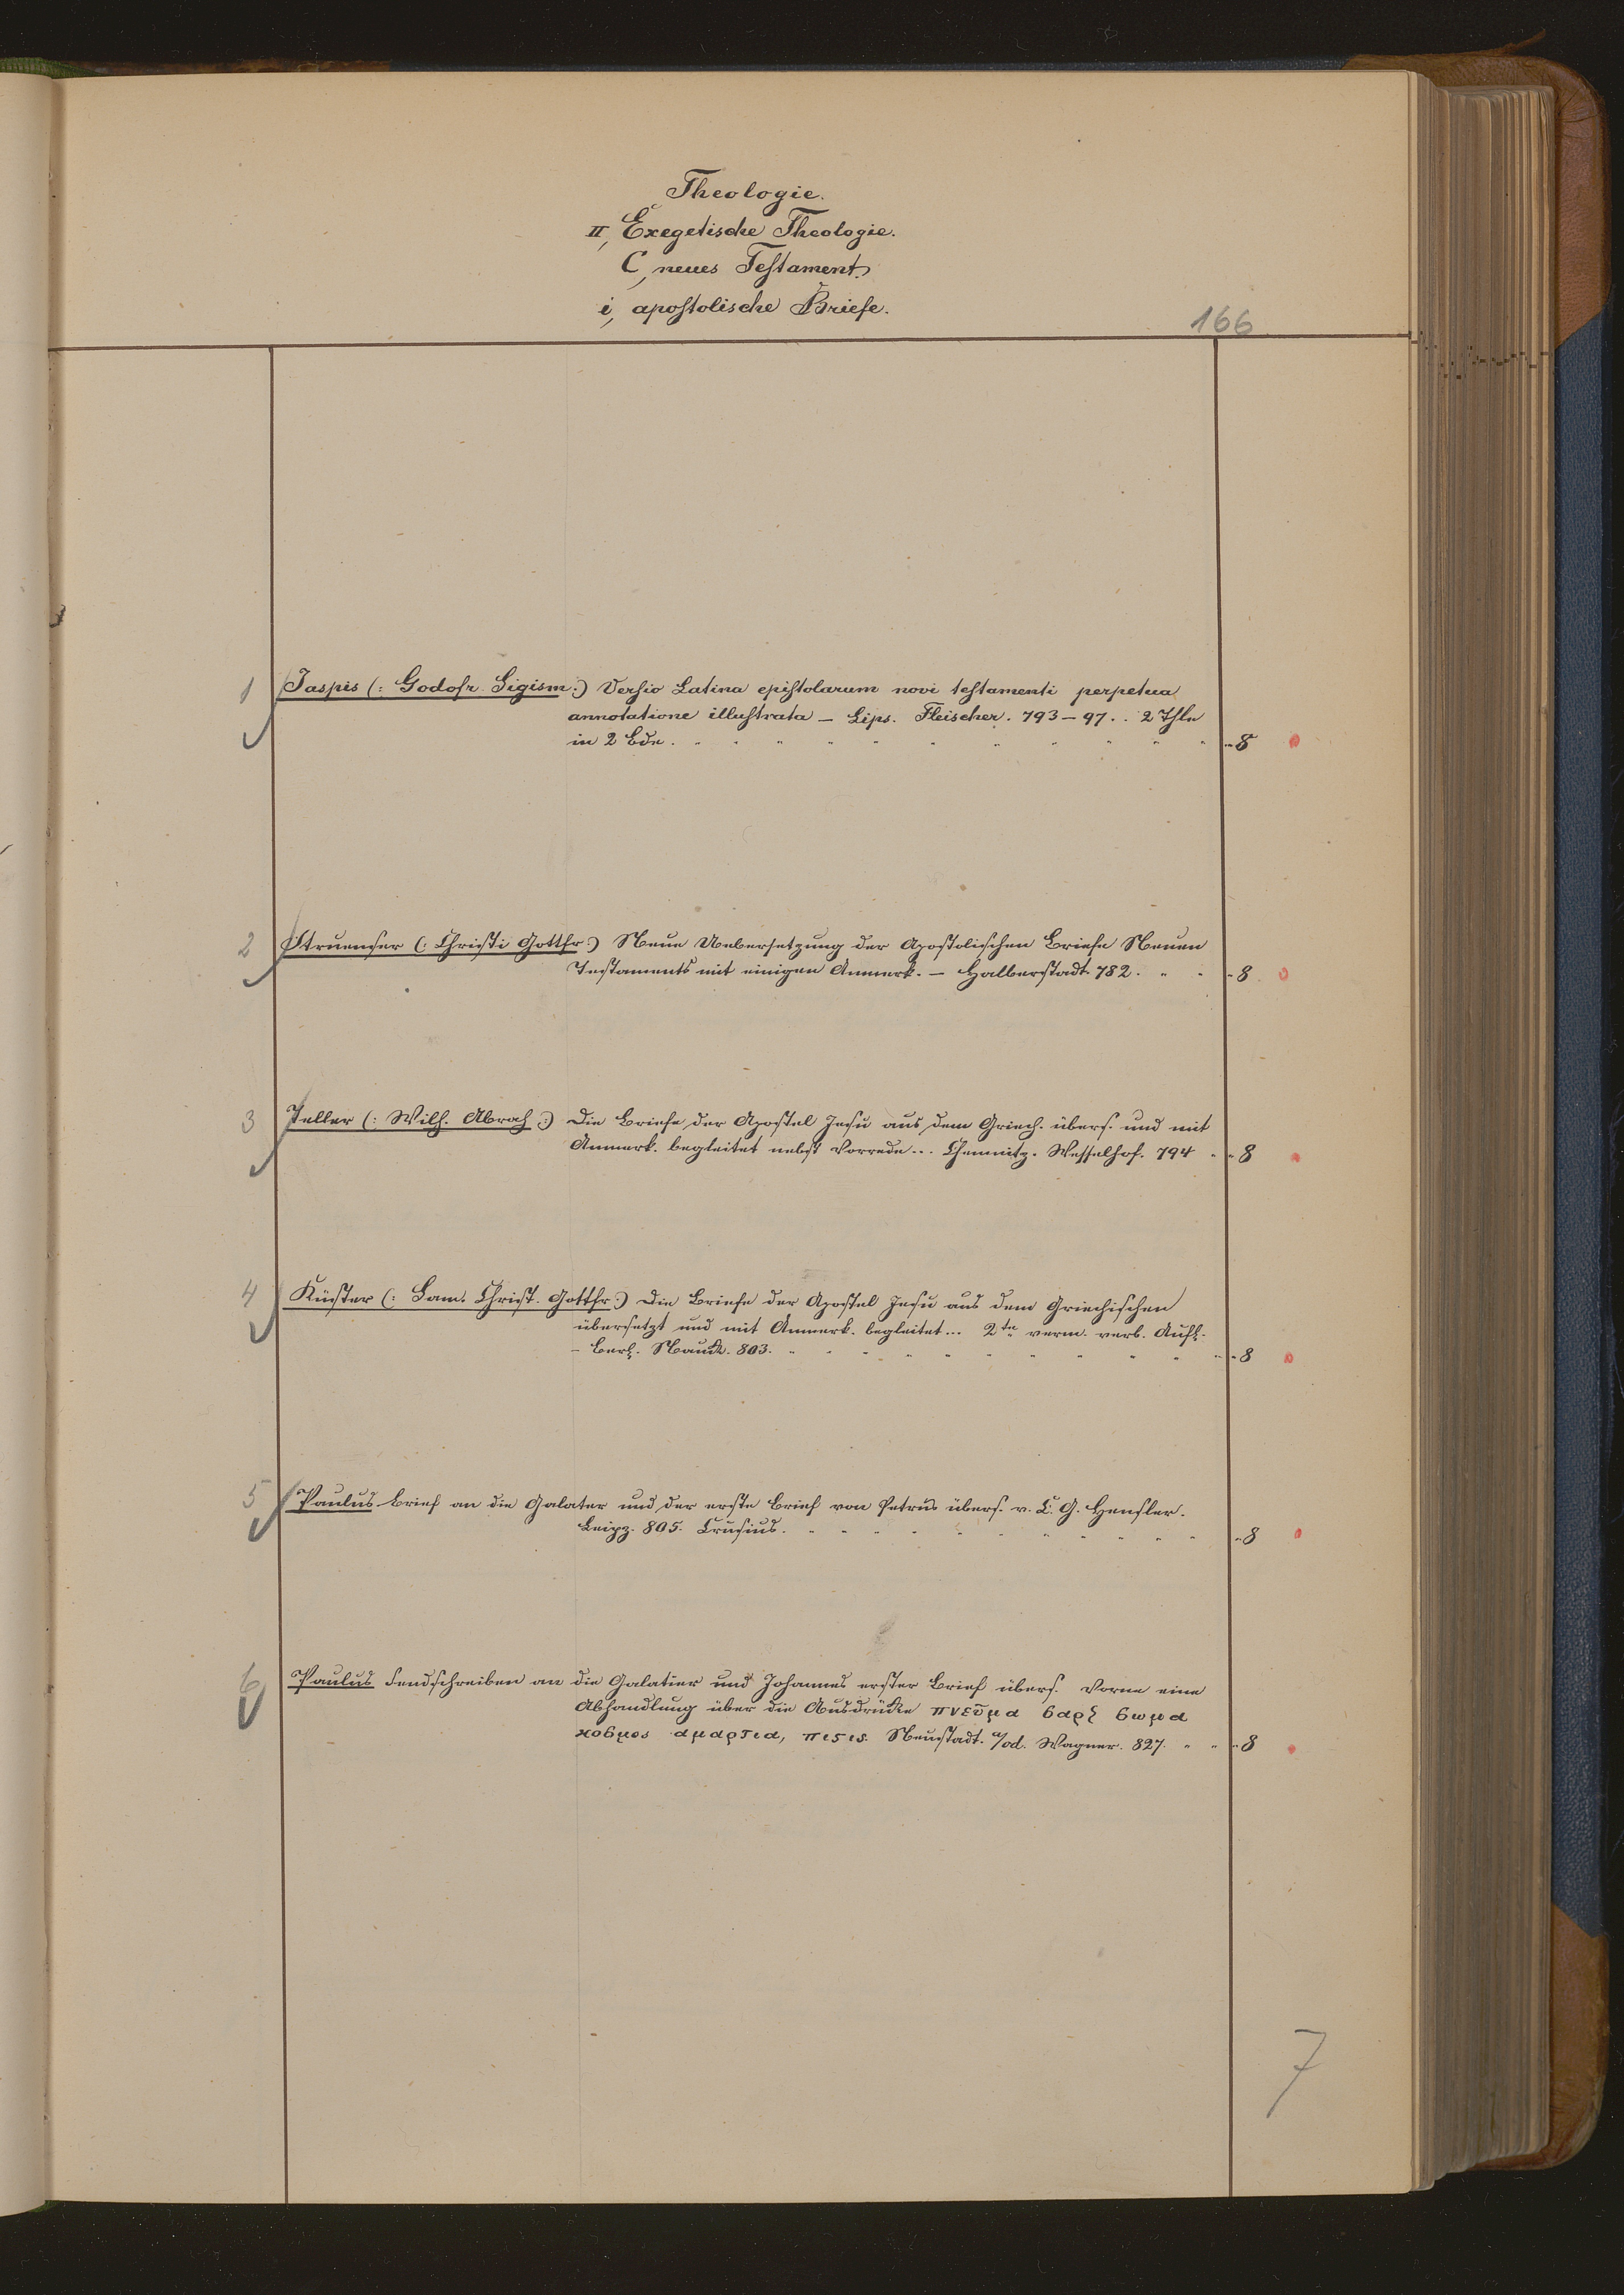 Theologie.
II, Exegetische Theologie.
C, neues Testament.
i, apostolische Briefe.
166
1 Jaspis (: Godofr. Sigism :) Versio Latina epistolarum novi testamenti perpetua
annotatione illustrata — Lips. Fleischer. 793–97. . 2 Thle
in 2 Bde. " " " " " " " " " " - 8
2 Struensee (: Christi Gottfr :) Neue Uebersetzung der Apostolischen Briefe Neuen
Testaments mit einigen Anmerk. — Halberstadt 782. " " - 8
3 Teller (: Wilh. Abrah :) Die Briefe der Apostel Jesu aus dem Griech. übers. und mit
Anmerk. begleitet nebst Vorrede... Chemnitz. Wesselhof. 794 " - 8
4 Küster (: Sam. Christ. Gottfr :) Die Briefe der Apostel Jesu aus dem Griechischen
übersetzt und mit Anmerk. begleitet... 2te verm. verb. Aufl.
– Berl. Nauck. 803. " " " " " " " " " " - 8
5 Paulus Brief an die Galater und der erste Brief von Petrus übers. v. C. G. Hensler.
Leipz. 805. Crusius. " " " " " " " " " " - 8
6 Paulus Sendschreiben an die Galatier und Johannes erster Brief übers. Vorne eine
Abhandlung über die Ausdrücke πνεῦμα σαρξ σωμα
κοσμος αμαρτια, πιςις. Neustadt. a/od. Wagner. 827. " " - 8
7